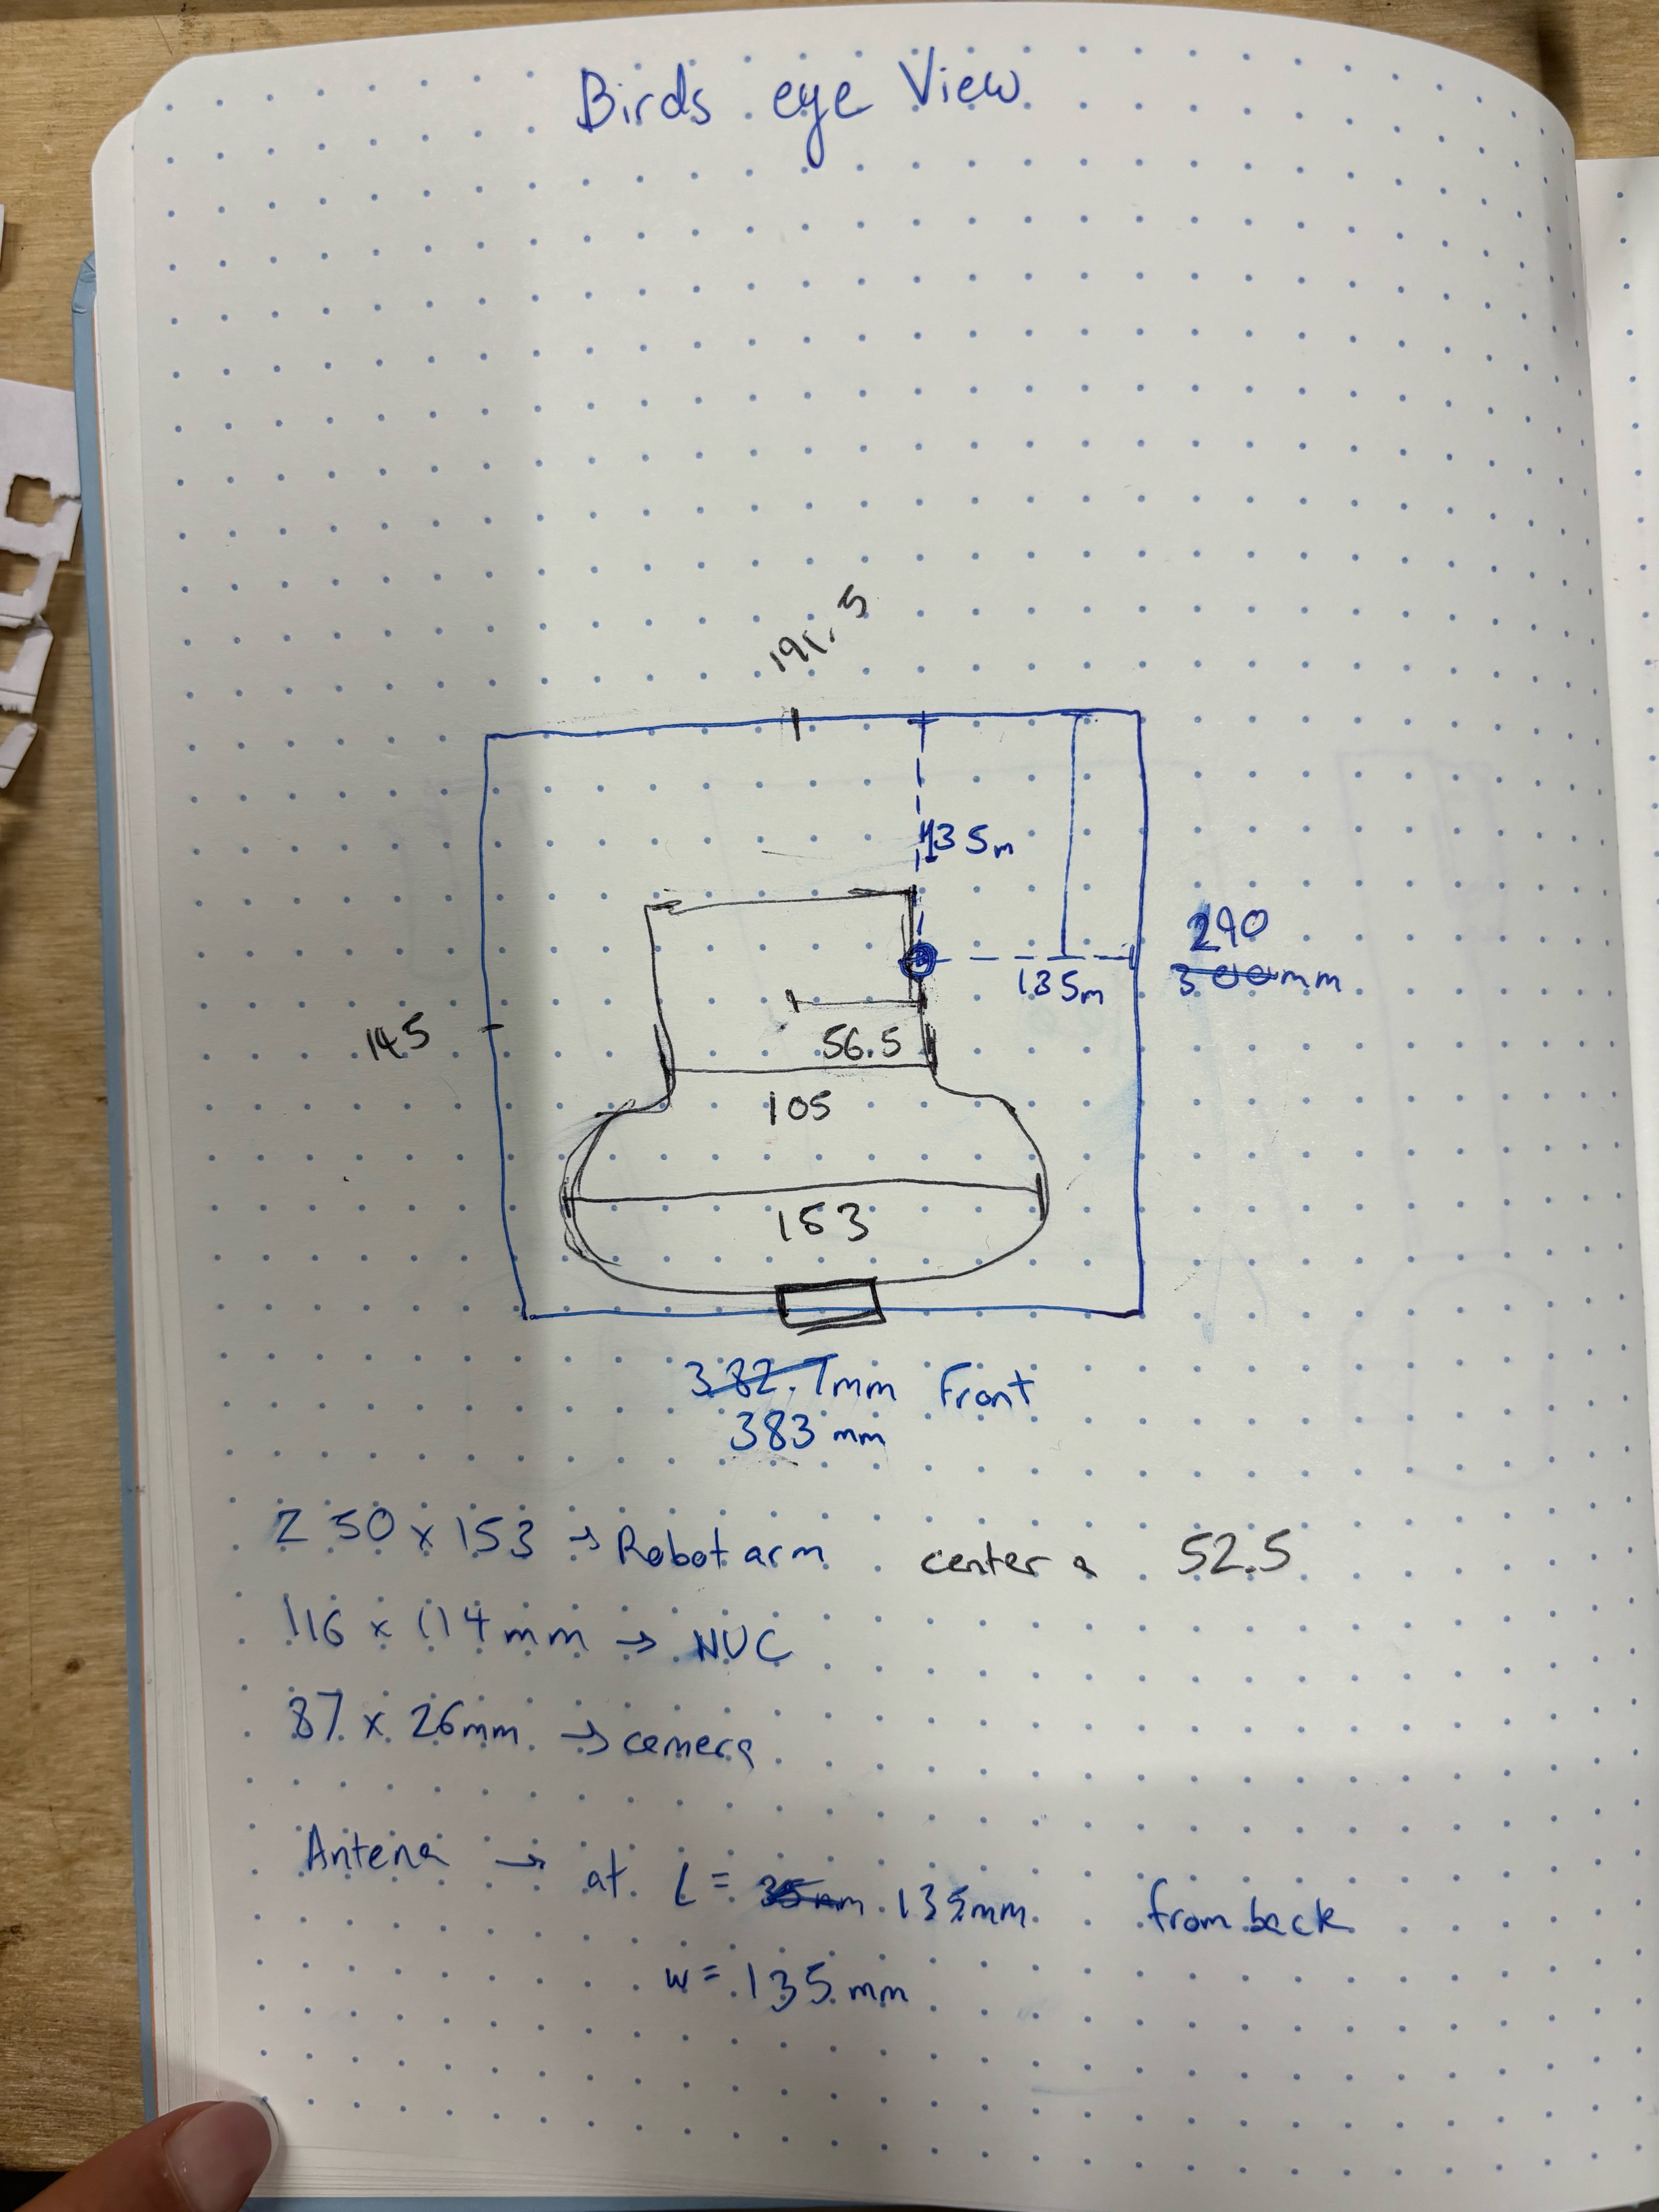 Birds eye View
191.5
135m
290
300mm
135m
145
56.5
105
153
382.7mm Front
383mm
250 x 153 → Robot arm center a 52.5
116 x 114mm → NUC
87 x 26mm → camera
Antena → at L = 35mm 135mm from back
w = 135mm